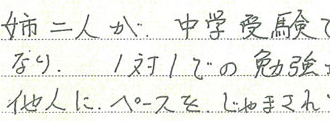 姉二人が、中学受験で
なり、1対1での勉強
他人に、ペースを、じゃまされ